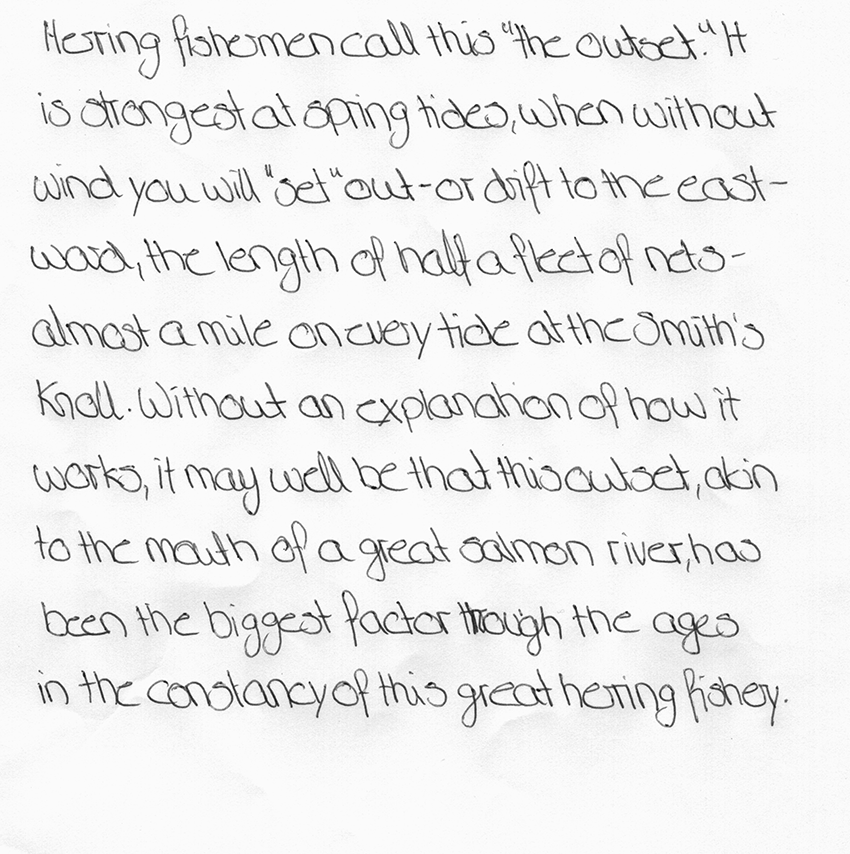 Herring fishermen call this "the outset." It
is strongest at spring tides, when without
wind you will "set" out - or drift to the east-
ward, the length of half a fleet of nets -
almost a mile on every tide at the Smith's
Knoll. Without an explanation of how it
works, it may well be that this outset, akin
to the mouth of a great salmon river, has
been the biggest factor trough the ages
in the constancy of this great herring fishery.